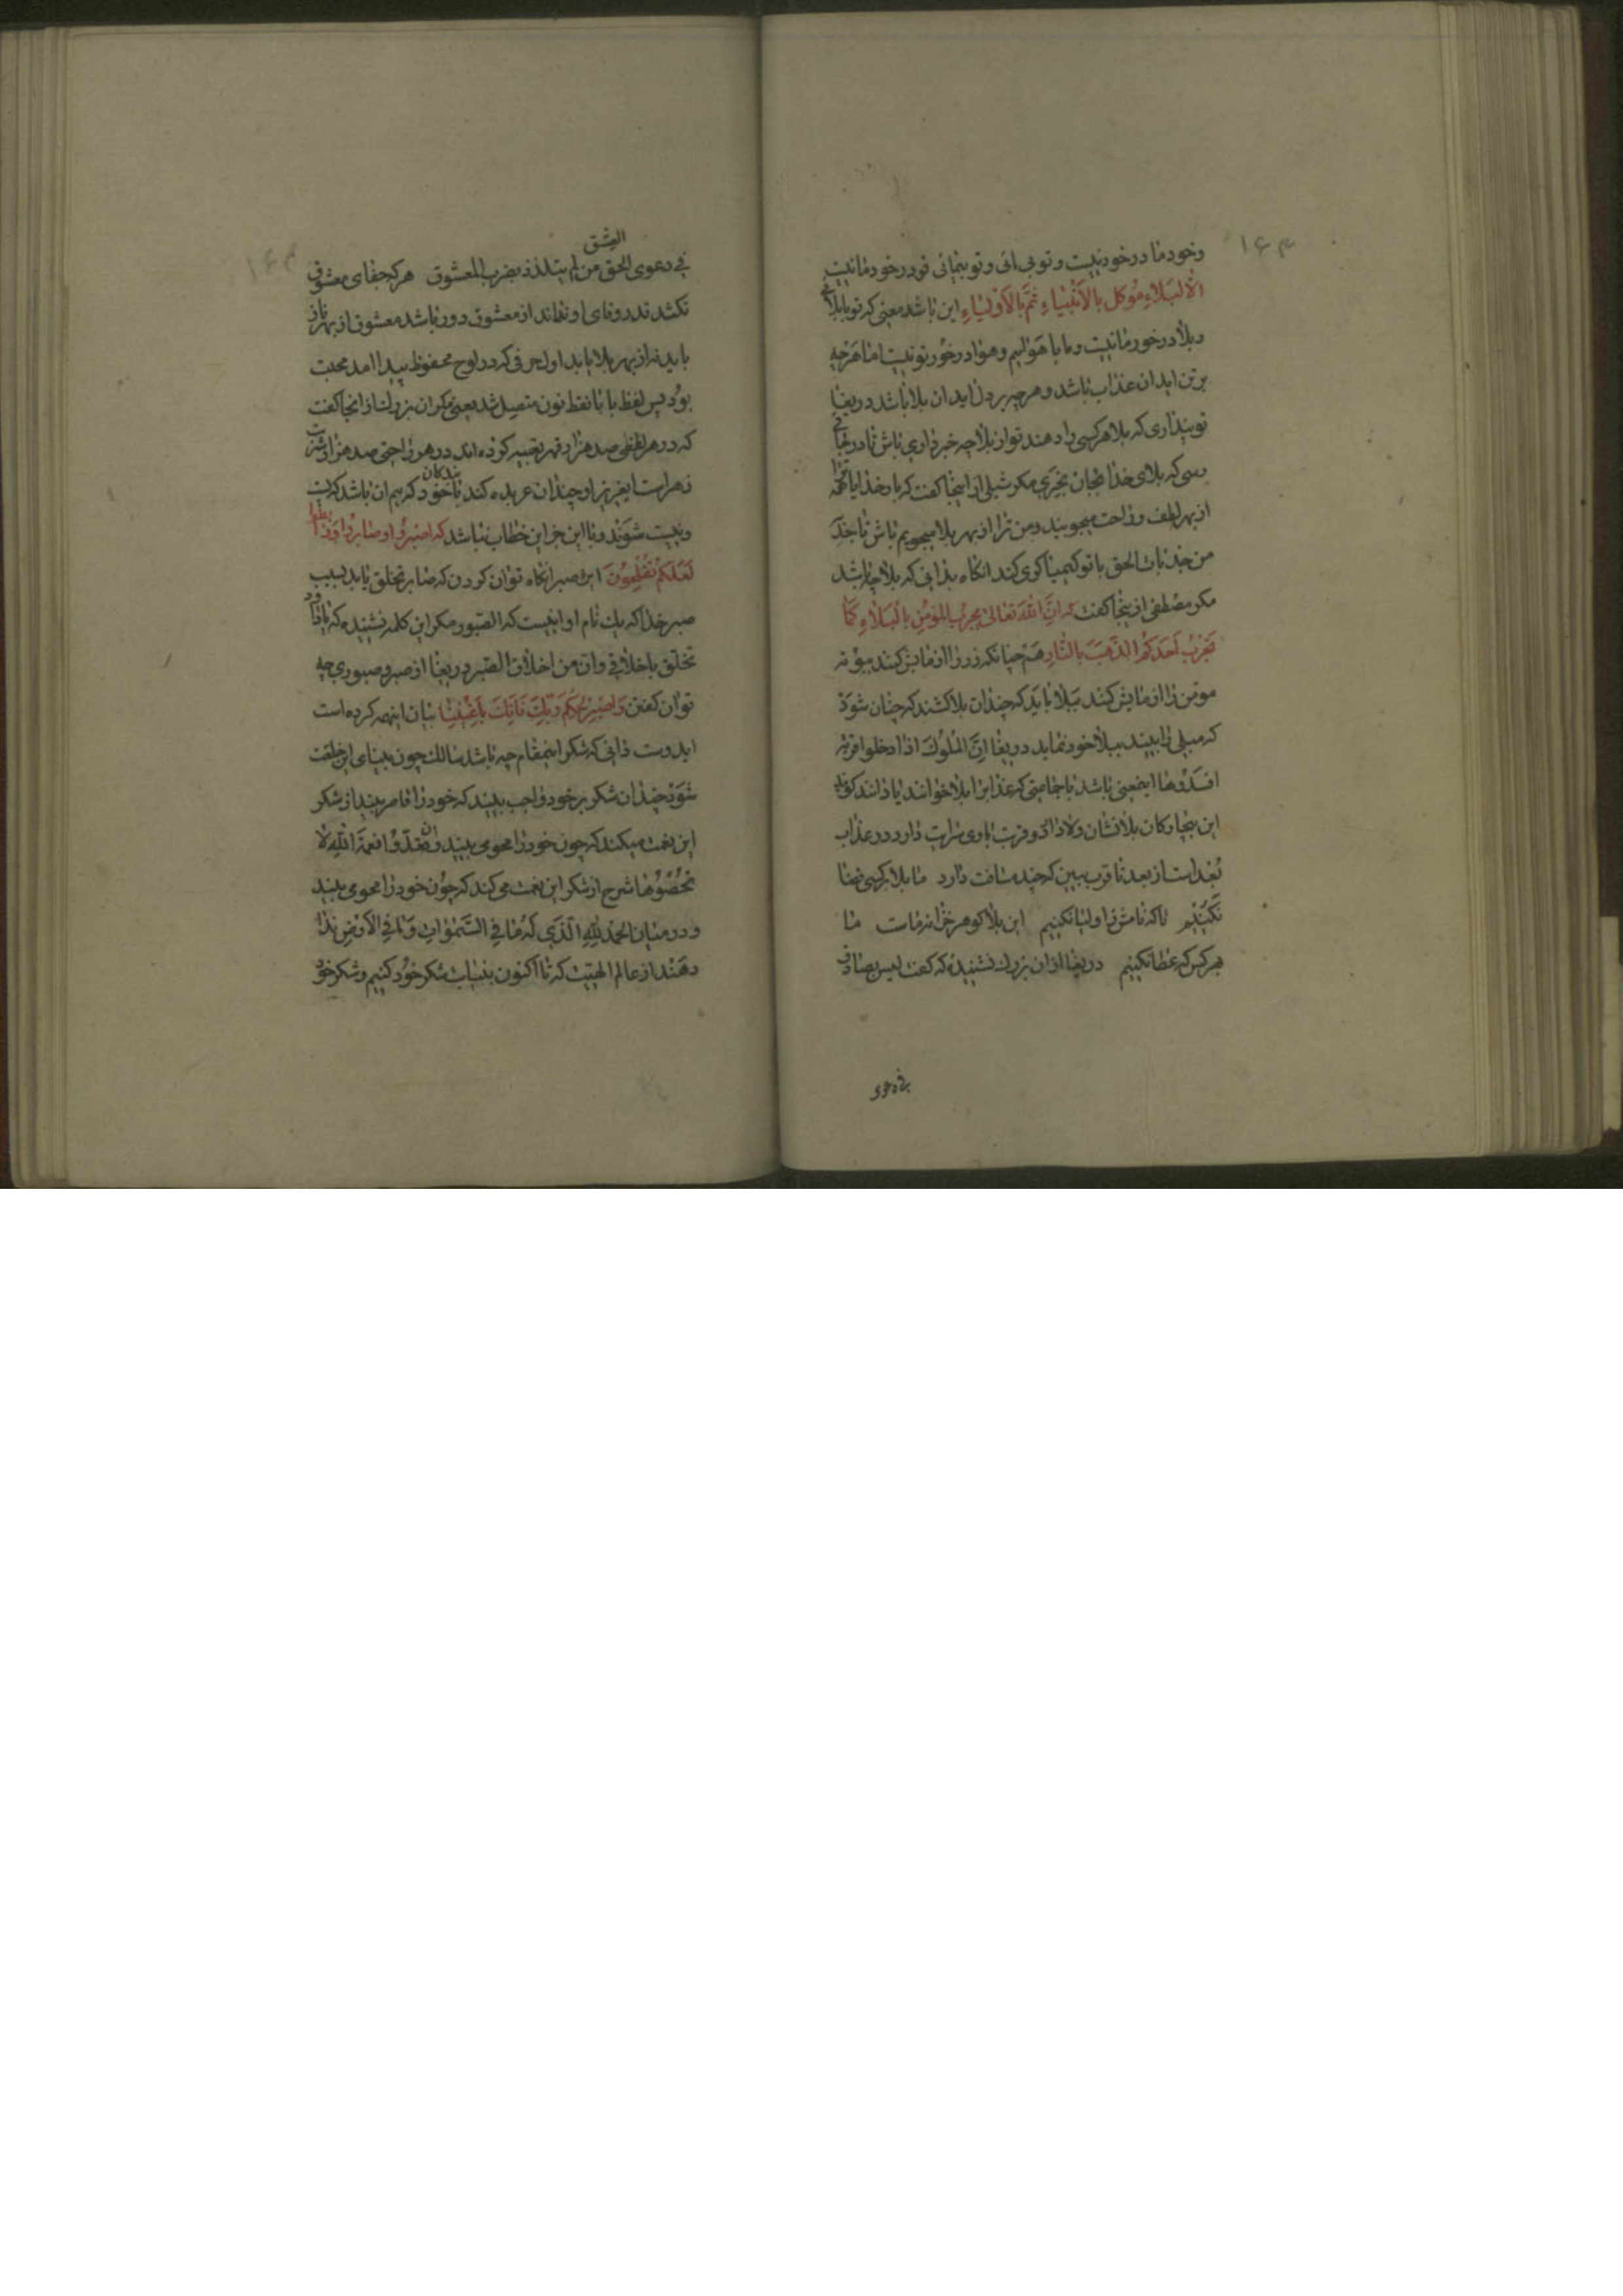 ۱۶۳
وخود ما در خود نیست و تو بی مائی و تو بیمائی تو در خود ما نیست
الا البَلاءِ مُوکل بالاَنْبیاءِ ثمَّ بالاَوْلیاءِ این باشد معنی که تو با بلائی
و بلا در خور ما نیست و ما با هوائیم و هوا در خور تو نیست اما هرچه
بر تن اید ان عذاب باشد و هرچه بر دل اید ان بلا باشد دریغا
تو پنداری که بلا هر کسی را دهند تو از بلا چه خبر داری باش تا در جائی
رسی که بلای خدا بجان بخری مکر شبلی از اینجا کفت که بار خدایا همه ترا
از بهر لطف و راحت میجویند و من ترا از بهر بلا میجویم باش تا جذبة
من جذبات الحق با تو کیمیا کری کند انکاه بدانی که بلا چه باشد
مکر مصطفی از ینجا کفت که اِنَّ اللّهَ تعالیٰ یجرّب المؤمن بالبَلاءِ کَما
یُجَرّبُ اَحَدکُم الذَّهَبَ بالنّارِ هم چنانکه زر را ازمایش کنند ببوته
مومن را ازمایش کنند ببلا باید که چندان بلا کشند که چنان شود
که مبلی را ببیند ببلا خود نماید دریغا اِنَّ المُلُوکَ اذا دخلوا قریة
افسَدُوها اینمعنی باشد با جماعتی که عذابرا بلا خوانند یا دانند که تو
این بیچارکان بلا نشان ولا داد و قربت باوی سرایت دارد و در عذاب
بُعد است از بعد تا قرب ببین که چند مسافت دارد ما بلا بر کسی قضا
نکنیم تا که نامش ز اولیا نکنیم این بلا کوهر خزانه ماست ما
بهر کس کهر عطا نکنیم دریغا از ان بزرک نشنیدهٔ که کفت لیس بصادق
فی دعوی
۱۶۴
فی دعوی العشق الحق من لم یتلذذ بضرب المعشوق هر که جفای معشوق
نکشد قدر وفای او نداند از معشوق دور باشد معشوق از بهر ناز
باید نه از بهر بلا باید اول حرفی که در لوح محفوظ پیدا امد محبت
بود پس لفظ با با نقط نون متصل شد یعنی مکر ان بزرک از انجا کفت
که در هر لطفی صد هزار قهر تعبیه کرده اند در هر راحتی صد هزار شربت
زهر است ایعزیز او چندان عربده کند با بندکان خود که بیم ان باشد که پست
و نیست شوند و با این جز این خطاب نباشد که اصبرُوا و صَابِرُوا وَرابطوا
لَعَلکُمْ تُفْلِحُونَ این صبر انکاه توان کردن که صابر تخلق یابد بسبب
صبر خدا که یک نام او اینست که الصبور مکر این کلمه نشنیده که یا داود
تخلق باخلاقی و ان من اخلاق الصبر دریغا از صبر و صبوری چه
توان کفتن وَاصْبِر لِحُکْم رَبِّکَ فَاِنَّکَ باَعْیُنِنا بیان اینهمه کرده است
ایدوست دانی که شکر اینمقام چه باشد سالک چون بینای این خلعت
شود چندان شکر بر خود واجب بیند که خود را قاصر بیند از شکر
این نعمت میکند که چون خود را محو می بیند وَان تعُدّوا نعمة اللّهِ لا
تُحصُوها شرح از شکر این نعمت می کند که چون خود را محو می بیند
و در میان الحَمْدُ لِلّٰهِ الّذی لَهُ مٰا فی السَّمٰوٰاتِ وَمٰا فی الاَرْضِ ندا
دهَنْد از عالم الهیّت که تا اکنون بنیابت شکر خود کنیم و شکر خود